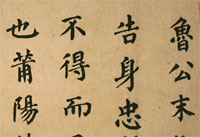 魯公末
告身忠
不得而
也莆陽